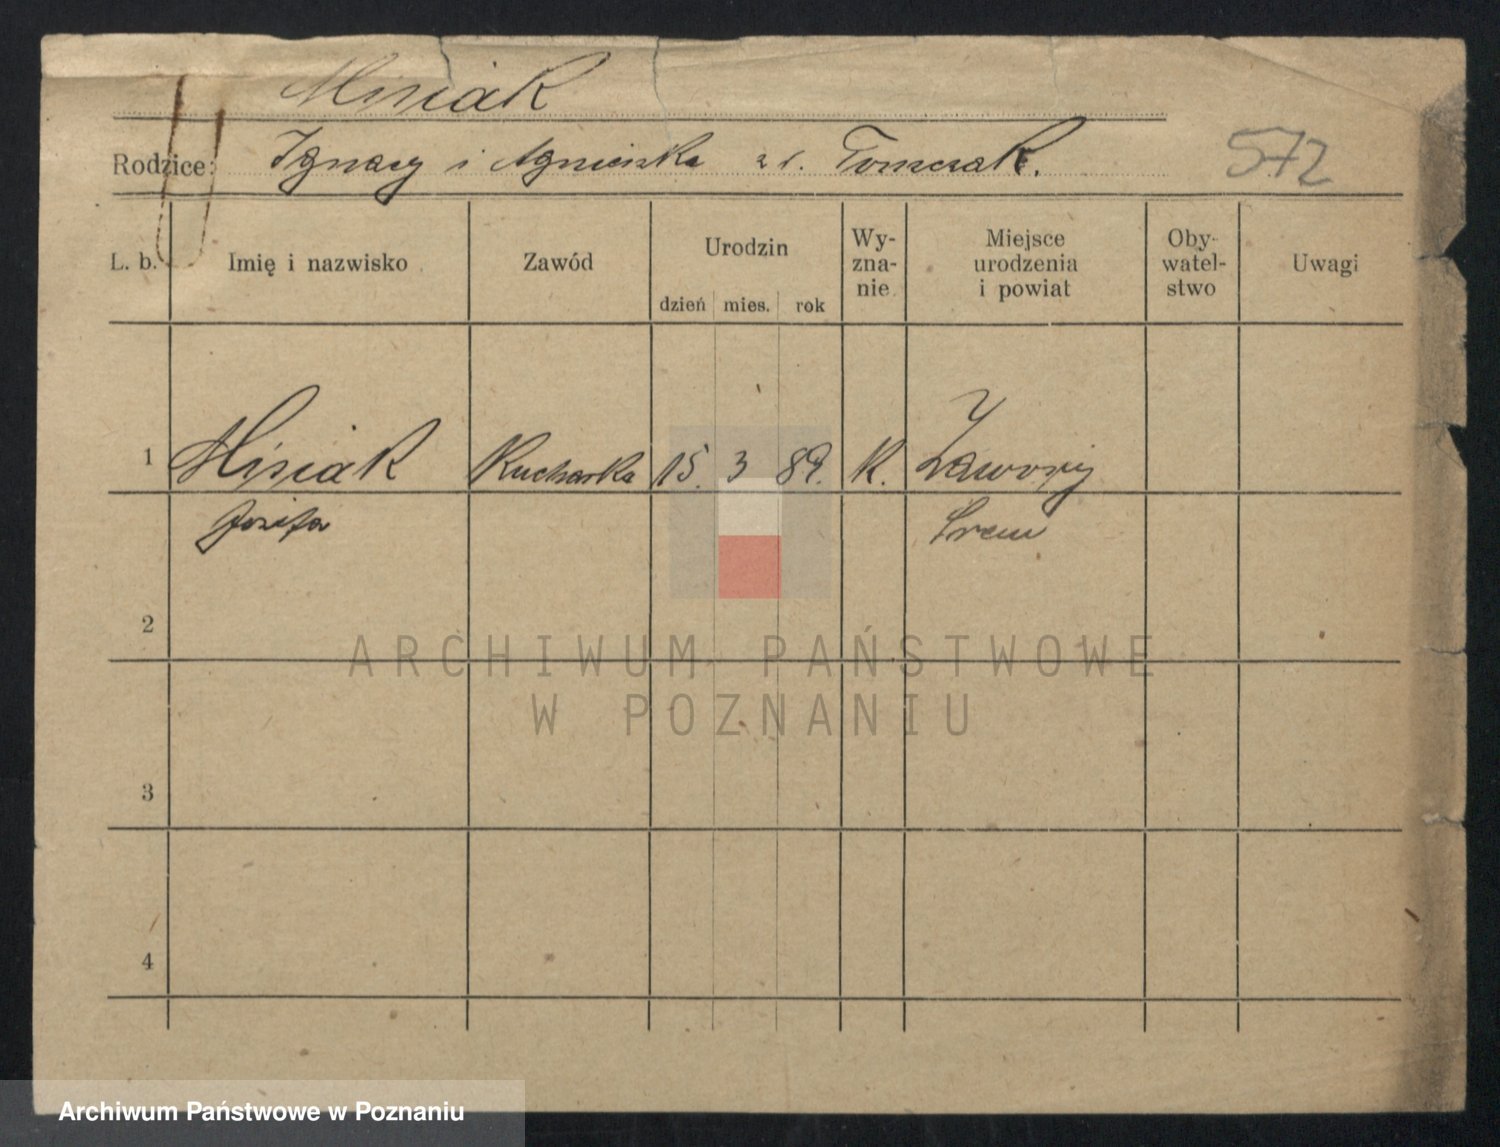 Misiak
Rodzice: Ignacy i Agnieszka z d. Tomczak.
572
L. b. Imię i nazwisko Zawód Urodzin dzień mies. rok Wy- zna- nie Miejsce urodzenia i powiat Oby- watel- stwo Uwagi
1 Misiak Kucharka 15. 3 89. K. Zawory
Józefa Śrem
2
3
4
ARCHIWUM PAŃSTWOWE
W POZNANIU
Archiwum Państwowe w Poznaniu